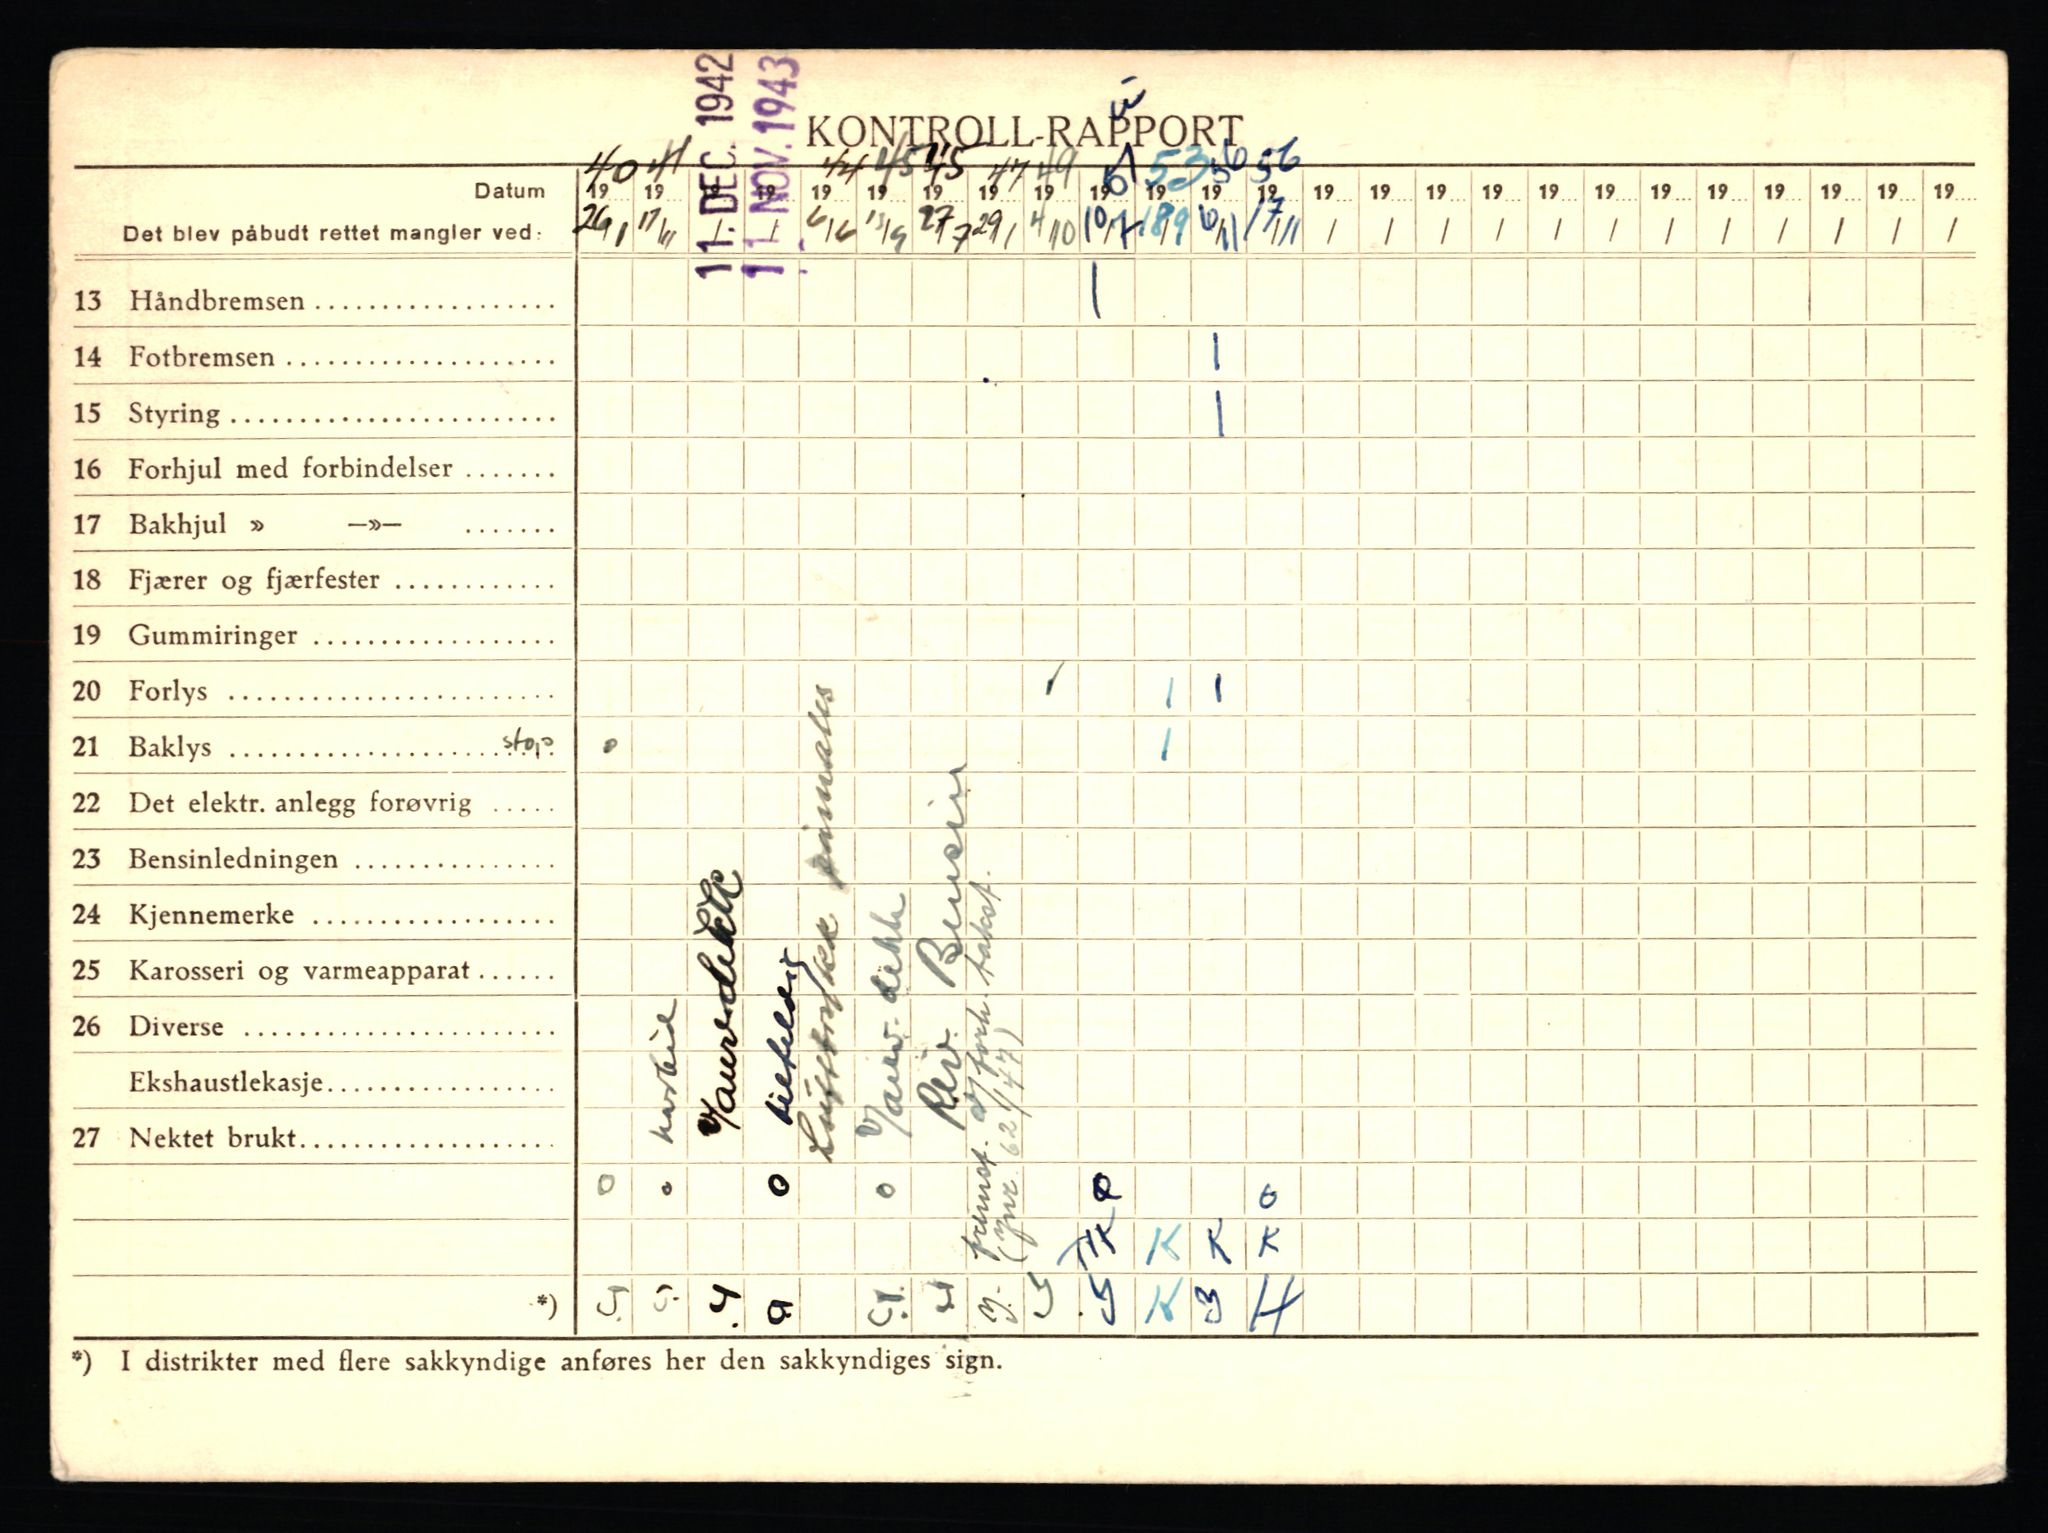 11. DEC. 1942
11. NOV. 1943
KONTROLL-RAPPORT
40 41 44 45 45 47 49 51 53 56 56
Datum 19 19 19 19 19 19 19 19 19 19 19 19 19 19 19 19 19 19 19 19 19 19 19 19 19
Det blev påbudt rettet mangler ved: 26/1 17/11 / / 6/6 13/9 27/7 29/1 4/10 10/7 18/9 6/11 17/11 / / / / / / / / / / / /
13 Håndbremsen 1
14 Fotbremsen 1
15 Styring 1
16 Forhjul med forbindelser
17 Bakhjul » —»—
18 Fjærer og fjærfester
19 Gummiringer
20 Forlys 1 1 1
21 Baklys stop o 1
22 Det elektr. anlegg forøvrig
23 Bensinledningen
24 Kjennemerke
25 Karosseri og varmeapparat
26 Diverse
Ekshaustlekasje
27 Nektet brukt
Rev. Bensin
o o o o o o
K K K K
K H
*)
*) I distrikter med flere sakkyndige anføres her den sakkyndiges sign.